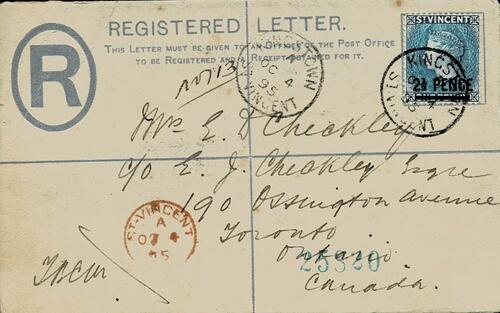 REGISTERED LETTER.
THIS LETTER MUST BE GIVEN TO AN OFFICER OF THE POST OFFICE
TO BE REGISTERED AND A RECEIPT OBTAINED FOR IT.
R
ST VINCENT
PENCE
KINGSTOWN
OC 4
95
ST VINCENT
KINGSTOWN
OC 4
95
VINCENT
Mrs E D Checkley
c/o E. J. Checkley Esqre
190 Ossington Avenue
Toronto
Ontario
Canada.
ST-VINCENT
A
OC 4
95
25320